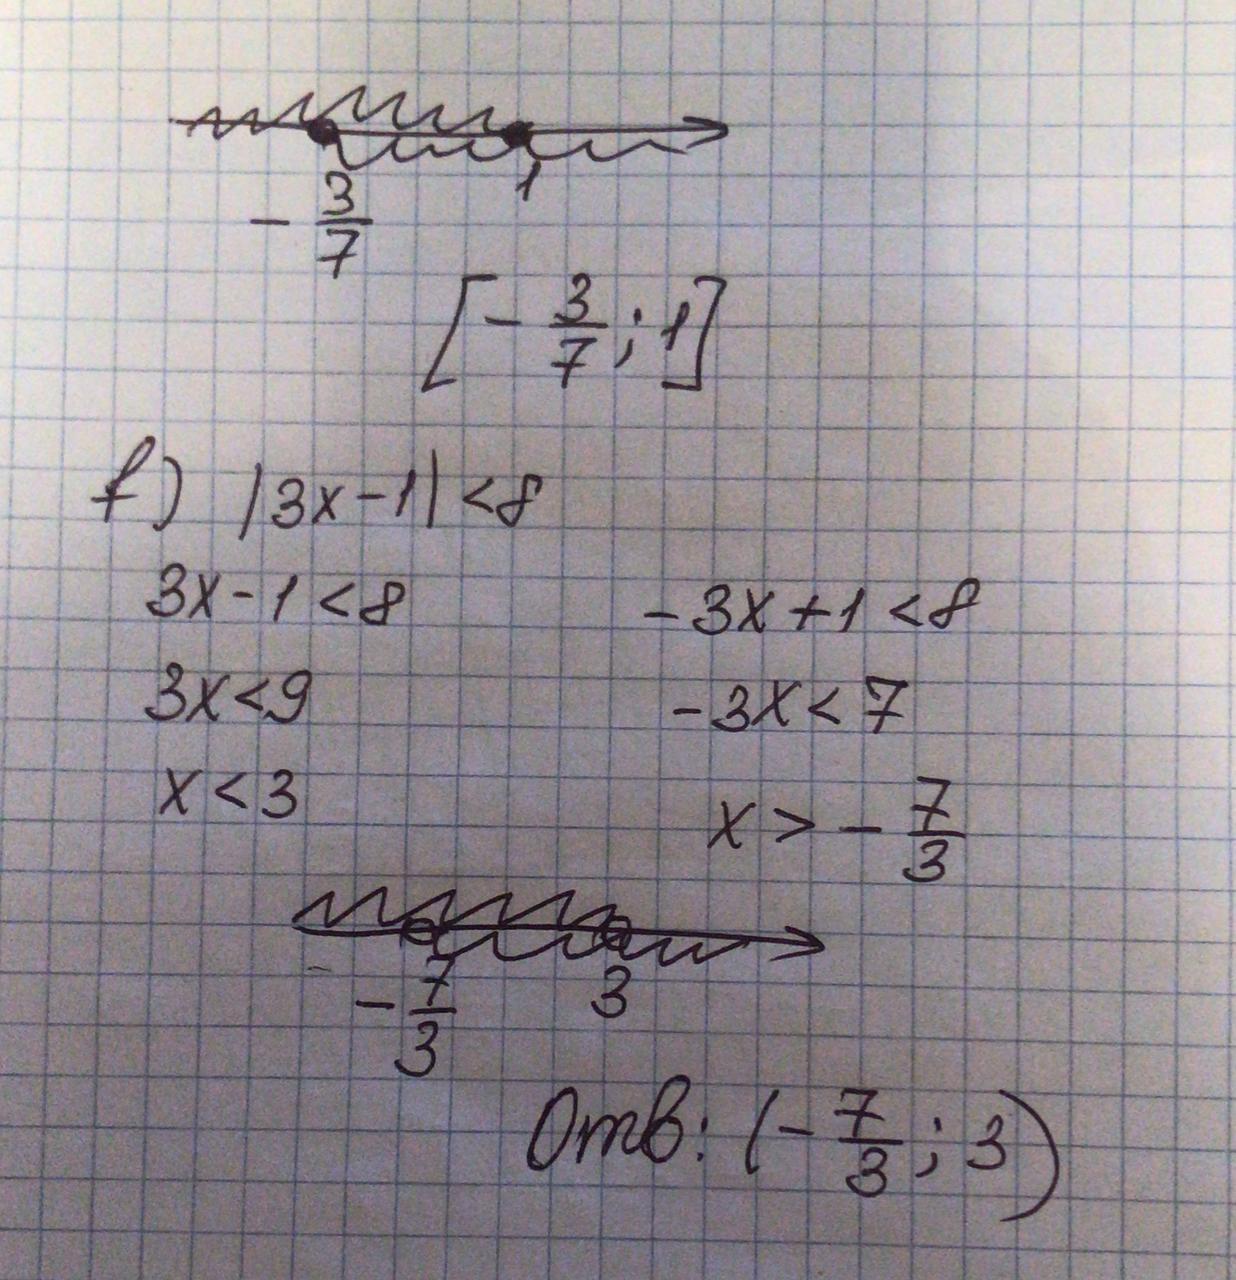 -3/7 1
[-3/7; 1]
f) |3x-1|<8
3x-1<8 -3x+1<8
3x<9 -3x<7
x<3 x>-7/3
-7/3 3
Отв: (-7/3; 3)